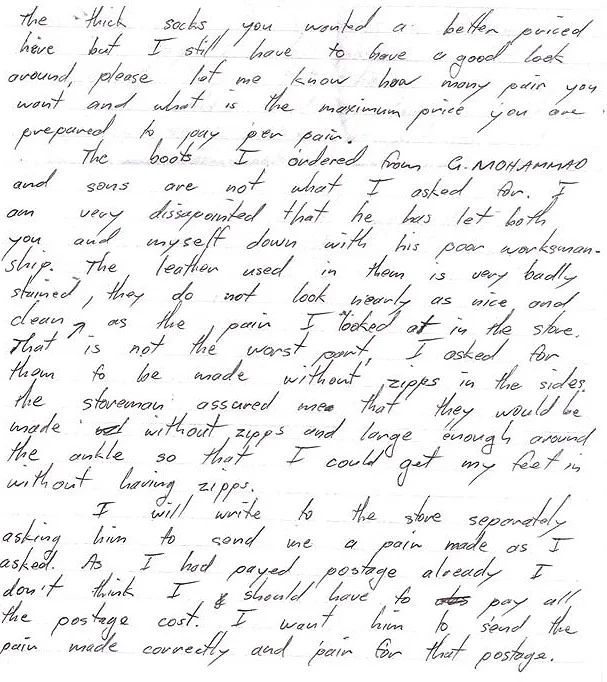 the thick socks, you wanted a better priced
here but I still have to have a good look
around, please let me know how many pair you
want and what is the maximum price you are
prepared to pay per pair.
The boots I ordered from G. MOHAMMAD
and sons are not what I asked for. I
am very dissapointed that he has let both
you and myself down with his poor worksman-
ship. The leather used in them is very badly
stained, they do not look nearly as nice and
clean, as the pair I looked at in the store.
That is not the worst part, I asked for
them to be made without zipps in the sides.
the storeman assured me that they would be
made without zipps and large enough around
the ankle so that I could get my feet in
without having zipps.
I will write to the store separately
asking him to send me a pair made as I
asked. As I had payed postage already I
don't think I should have to pay all
the postage cost. I want him to send the
pair made correctly and pair for that postage.